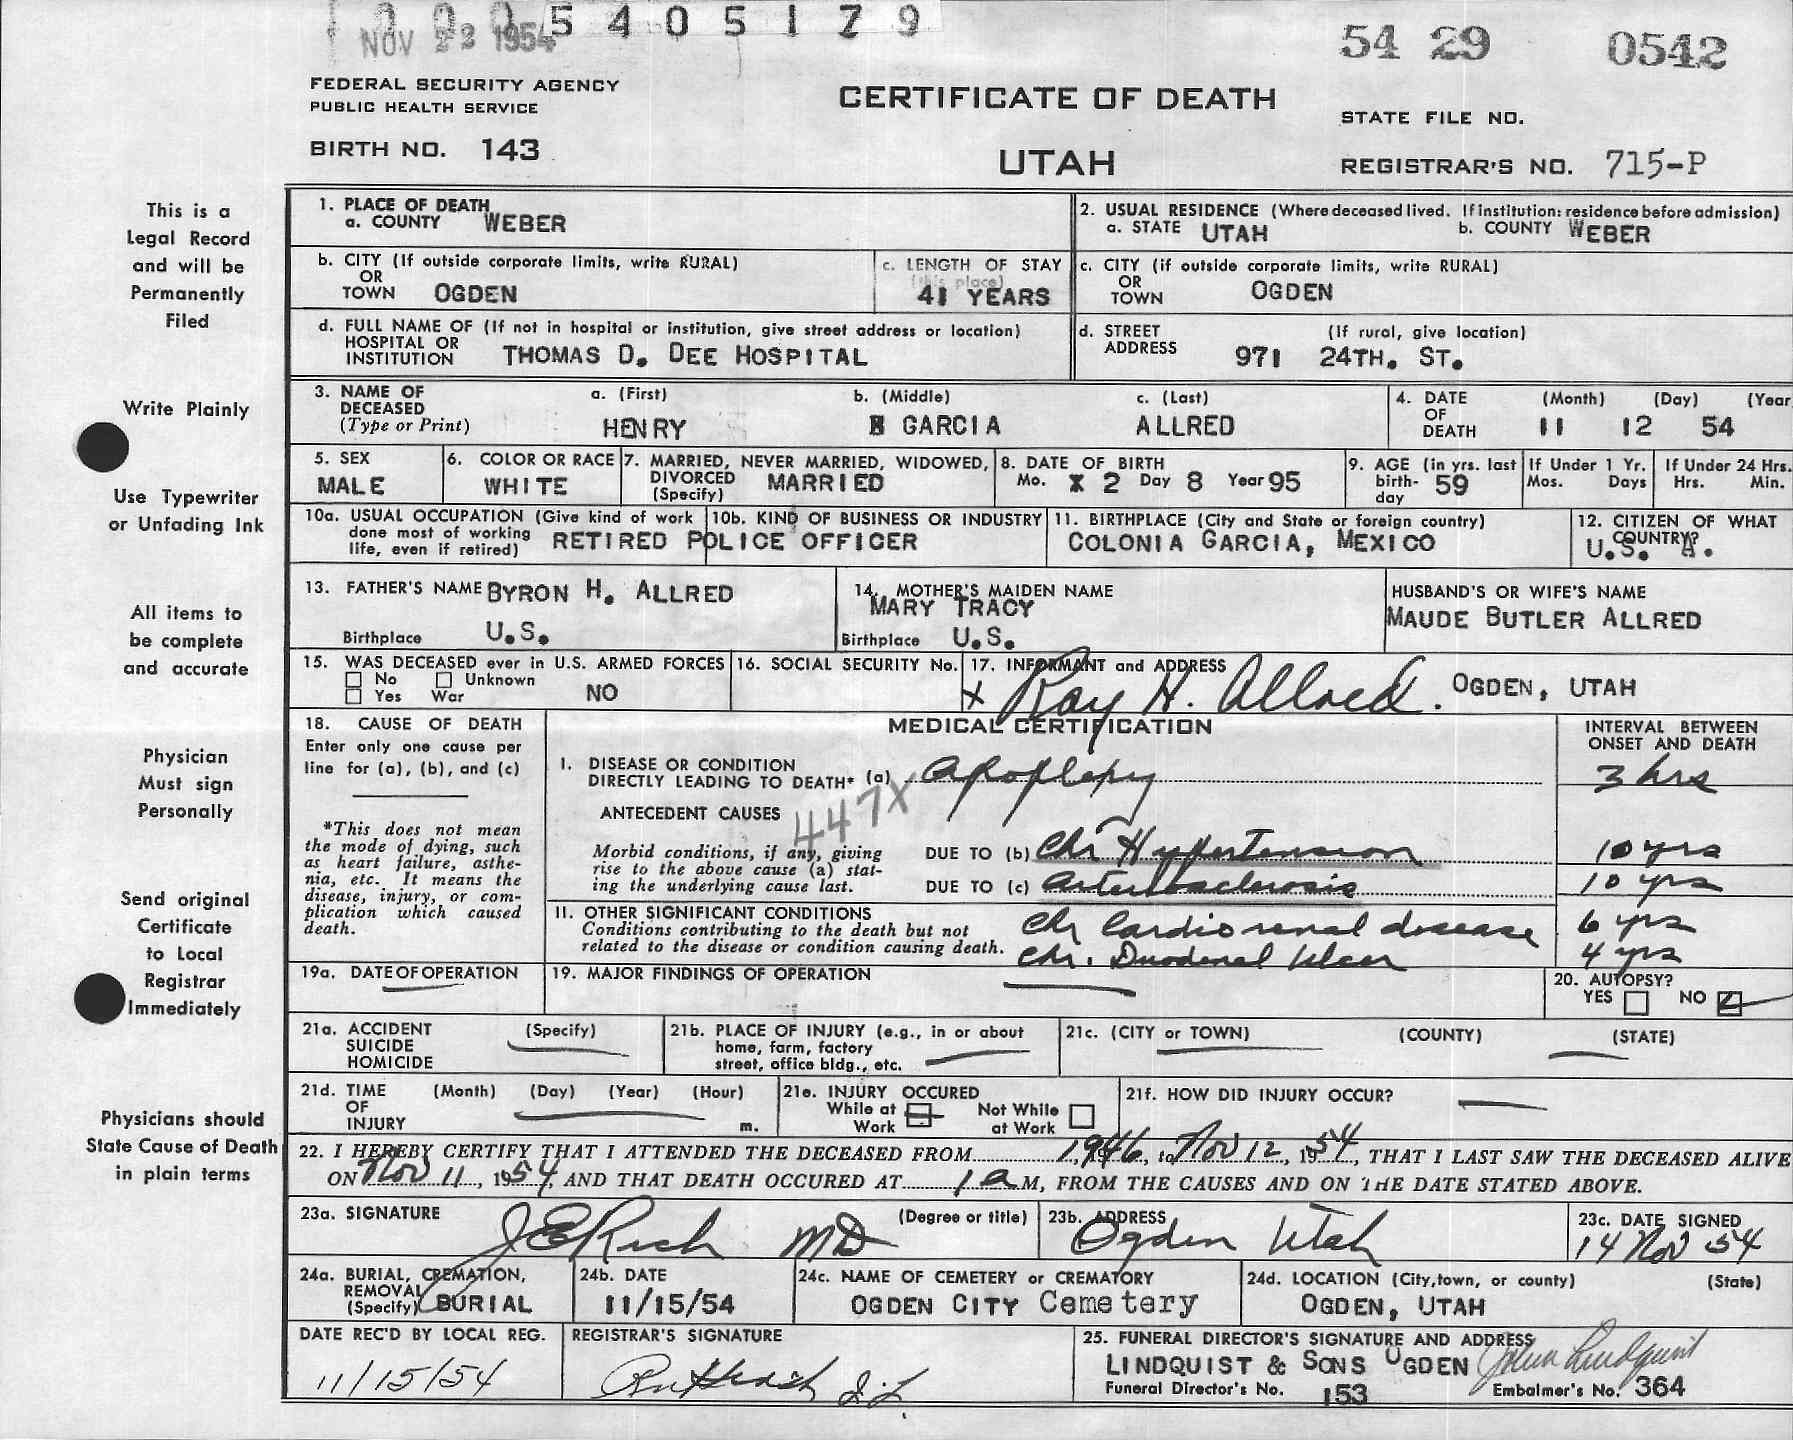 NOV 23 1954
5405179
54 29 0542
FEDERAL SECURITY AGENCY
PUBLIC HEALTH SERVICE
CERTIFICATE OF DEATH
STATE FILE NO.
BIRTH NO. 143
UTAH
REGISTRAR'S NO. 715-P
This is a
Legal Record
and will be
Permanently
Filed
Write Plainly
Use Typewriter
or Unfading Ink
All items to
be complete
and accurate
Physician
Must sign
Personally
Send original
Certificate
to Local
Registrar
Immediately
Physicians should
State Cause of Death
in plain terms
1. PLACE OF DEATH
a. COUNTY WEBER
2. USUAL RESIDENCE (Where deceased lived. If institution: residence before admission)
a. STATE UTAH b. COUNTY WEBER
b. CITY (If outside corporate limits, write RURAL)
OR
TOWN OGDEN
c. LENGTH OF STAY
(this place)
41 YEARS
c. CITY (if outside corporate limits, write RURAL)
OR
TOWN OGDEN
d. FULL NAME OF (If not in hospital or institution, give street address or location)
HOSPITAL OR
INSTITUTION THOMAS D. DEE HOSPITAL
d. STREET (If rural, give location)
ADDRESS 971 24TH. ST.
3. NAME OF a. (First) b. (Middle) c. (Last)
DECEASED
(Type or Print) HENRY GARCIA ALLRED
4. DATE (Month) (Day) (Year
OF
DEATH 11 12 54
5. SEX
MALE
6. COLOR OR RACE
WHITE
7. MARRIED, NEVER MARRIED, WIDOWED,
DIVORCED MARRIED
(Specify)
8. DATE OF BIRTH
Mo. 2 Day 8 Year 95
9. AGE (in yrs. last
birth- 59
day
If Under 1 Yr.
Mos. Days
If Under 24 Hrs.
Hrs. Min.
10a. USUAL OCCUPATION (Give kind of work
done most of working
life, even if retired) RETIRED POLICE OFFICER
10b. KIND OF BUSINESS OR INDUSTRY
11. BIRTHPLACE (City and State or foreign country)
COLONIA GARCIA, MEXICO
12. CITIZEN OF WHAT
COUNTRY?
U.S. A.
13. FATHER'S NAME BYRON H. ALLRED
Birthplace U.S.
14. MOTHER'S MAIDEN NAME
MARY TRACY
Birthplace U.S.
HUSBAND'S OR WIFE'S NAME
MAUDE BUTLER ALLRED
15. WAS DECEASED ever in U.S. ARMED FORCES
No Unknown
Yes War NO
16. SOCIAL SECURITY No.
17. INFORMANT and ADDRESS
x Ray H. Allred. OGDEN, UTAH
18. CAUSE OF DEATH
Enter only one cause per
line for (a), (b), and (c)
*This does not mean
the mode of dying, such
as heart failure, asthe-
nia, etc. It means the
disease, injury, or com-
plication which caused
death.
MEDICAL CERTIFICATION
INTERVAL BETWEEN
ONSET AND DEATH
I. DISEASE OR CONDITION
DIRECTLY LEADING TO DEATH* (a) Apoplexy 3 hrs
447X
ANTECEDENT CAUSES
Morbid conditions, if any, giving
rise to the above cause (a) stat-
ing the underlying cause last.
DUE TO (b) Chr Hypertension 10 yrs
DUE TO (c) Arteriosclerosis 10 yrs
II. OTHER SIGNIFICANT CONDITIONS
Conditions contributing to the death but not
related to the disease or condition causing death.
Chr Cardio renal disease 6 yrs
Chr. Duodenal Ulcer 4 yrs
19a. DATE OF OPERATION
19. MAJOR FINDINGS OF OPERATION
20. AUTOPSY?
YES NO
21a. ACCIDENT (Specify)
SUICIDE
HOMICIDE
21b. PLACE OF INJURY (e.g., in or about
home, farm, factory
street, office bldg., etc.
21c. (CITY or TOWN) (COUNTY) (STATE)
21d. TIME (Month) (Day) (Year) (Hour)
OF
INJURY m.
21e. INJURY OCCURED
While at Not While
Work at Work
21f. HOW DID INJURY OCCUR?
22. I HEREBY CERTIFY THAT I ATTENDED THE DECEASED FROM 1946, to Nov 12, 1954, THAT I LAST SAW THE DECEASED ALIVE
ON Nov 11, 1954, AND THAT DEATH OCCURED AT 1 a M, FROM THE CAUSES AND ON THE DATE STATED ABOVE.
23a. SIGNATURE (Degree or title)
J E Rich MD
23b. ADDRESS
Ogden Utah
23c. DATE SIGNED
14 Nov 54
24a. BURIAL, CREMATION,
REMOVAL
(Specify) BURIAL
24b. DATE
11/15/54
24c. NAME OF CEMETERY or CREMATORY
OGDEN CITY Cemetery
24d. LOCATION (City, town, or county) (State)
OGDEN, UTAH
DATE REC'D BY LOCAL REG.
11/15/54
REGISTRAR'S SIGNATURE
25. FUNERAL DIRECTOR'S SIGNATURE AND ADDRESS
LINDQUIST & SONS OGDEN John Lindquist
Funeral Director's No. 153 Embalmer's No. 364